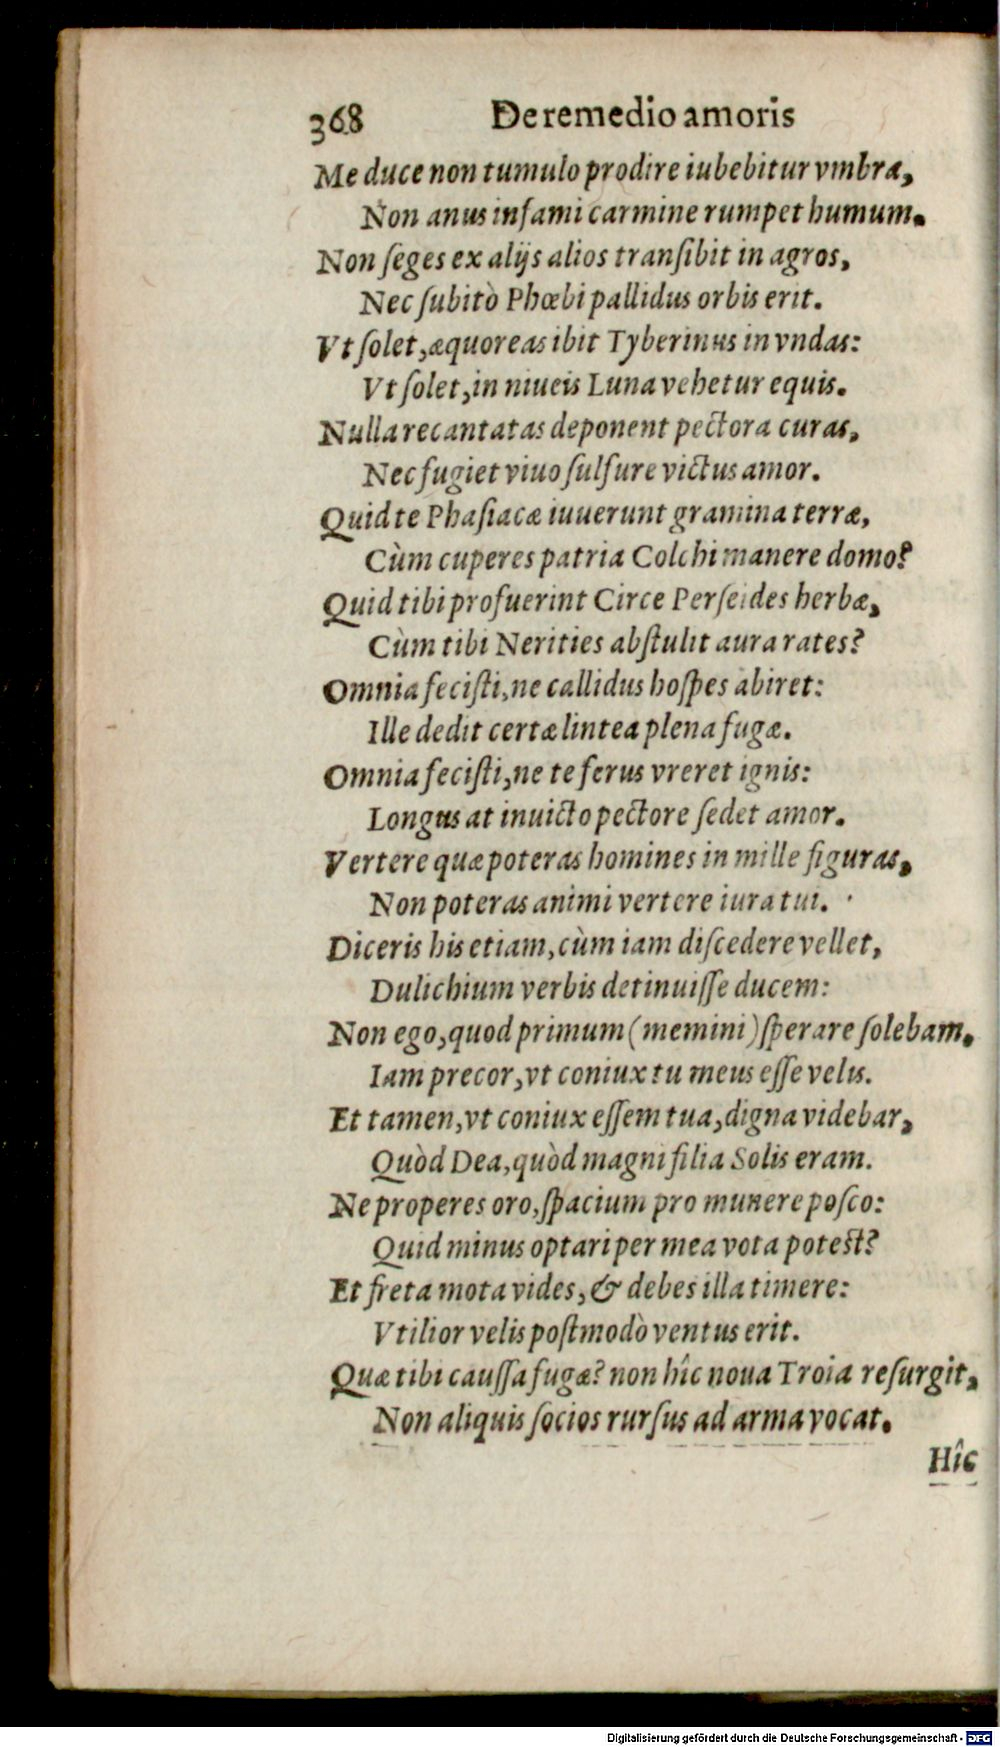 368 De remedio amoris
Me duce non tumulo prodire iubebitur vmbra,
Non anus infami carmine rumpet humum.
Non ſeges ex alijs alios tranſibit in agros,
Nec ſubitò Phœbi pallidus orbis erit.
Vt ſolet, æquoreas ibit Tyberinus in vndas:
Vt ſolet, in niueis Luna vehetur equis.
Nulla recantatas deponent pectora curas,
Nec fugiet viuo ſulfure victus amor.
Quid te Phaſiacæ iuuerunt gramina terræ,
Cùm cuperes patria Colchi manere domo?
Quid tibi profuerint Circe Perſeides herbæ,
Cùm tibi Nerities abſtulit aura rates?
Omnia feciſti, ne callidus hoſpes abiret:
Ille dedit certæ lintea plena fugæ.
Omnia feciſti, ne te ferus vreret ignis:
Longus at inuicto pectore ſedet amor.
Vertere quæ poteras homines in mille figuras,
Non poteras animi vertere iura tui.
Diceris his etiam, cùm iam diſcedere vellet,
Dulichium verbis detinuiſſe ducem:
Non ego, quod primum (memini) ſperare ſolebam.
Iam precor, vt coniux tu meus eſſe velis.
Et tamen, vt coniux eſſem tua, digna videbar,
Quòd Dea, quòd magni filia Solis eram.
Ne properes oro, ſpacium pro munere poſco:
Quid minus optari per mea vota poteſt?
Et freta mota vides, & debes illa timere:
Vtilior velis poſtmodò ventus erit.
Quæ tibi cauſſa fugæ? non hîc noua Troia reſurgit,
Non aliquis ſocios rurſus ad arma vocat.
Hîc
Digitalisierung gefördert durch die Deutsche Forschungsgemeinschaft - DFG